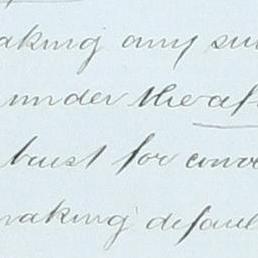 aking any su
under the af
trust for conve
making defaul